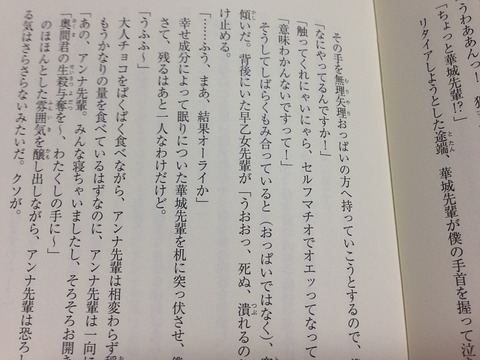 うわああんっ！
「ちょっと華城先輩!?」
リタイアしようとした途端、華城先輩が僕の手首を握って泣
その手を無理矢理おっぱいの方へ持っていこうとするので、
「なにやってるんですか！」
「触ってくれにゃいにゃら、セルフマチオでオエッってなって
「意味わかんないですって！」
そうしてしばらくもみ合っていると（おっぱいではなく）、
傾いだ。背後にいた早乙女先輩が「うおおっ、死ぬ、潰れるの
け止める。
「……ふう、まあ、結果オーライか」
幸せ成分によって眠りについた華城先輩を机に突っ伏させ、
さて、残るはあと一人なわけだけど。
「うふふ〜」
大人チョコをぱくぱく食べながら、アンナ先輩は相変わらず
もうかなりの量を食べているはずなのに、アンナ先輩は一向に
「あの、アンナ先輩。みんな寝ちゃいましたし、そろそろお開き
「奥間君の生殺与奪を〜、わたくしの手に〜」
のほほんとした雰囲気を醸し出しながら、アンナ先輩は恐ろし
る気はさらさらないみたいだ。クソが。